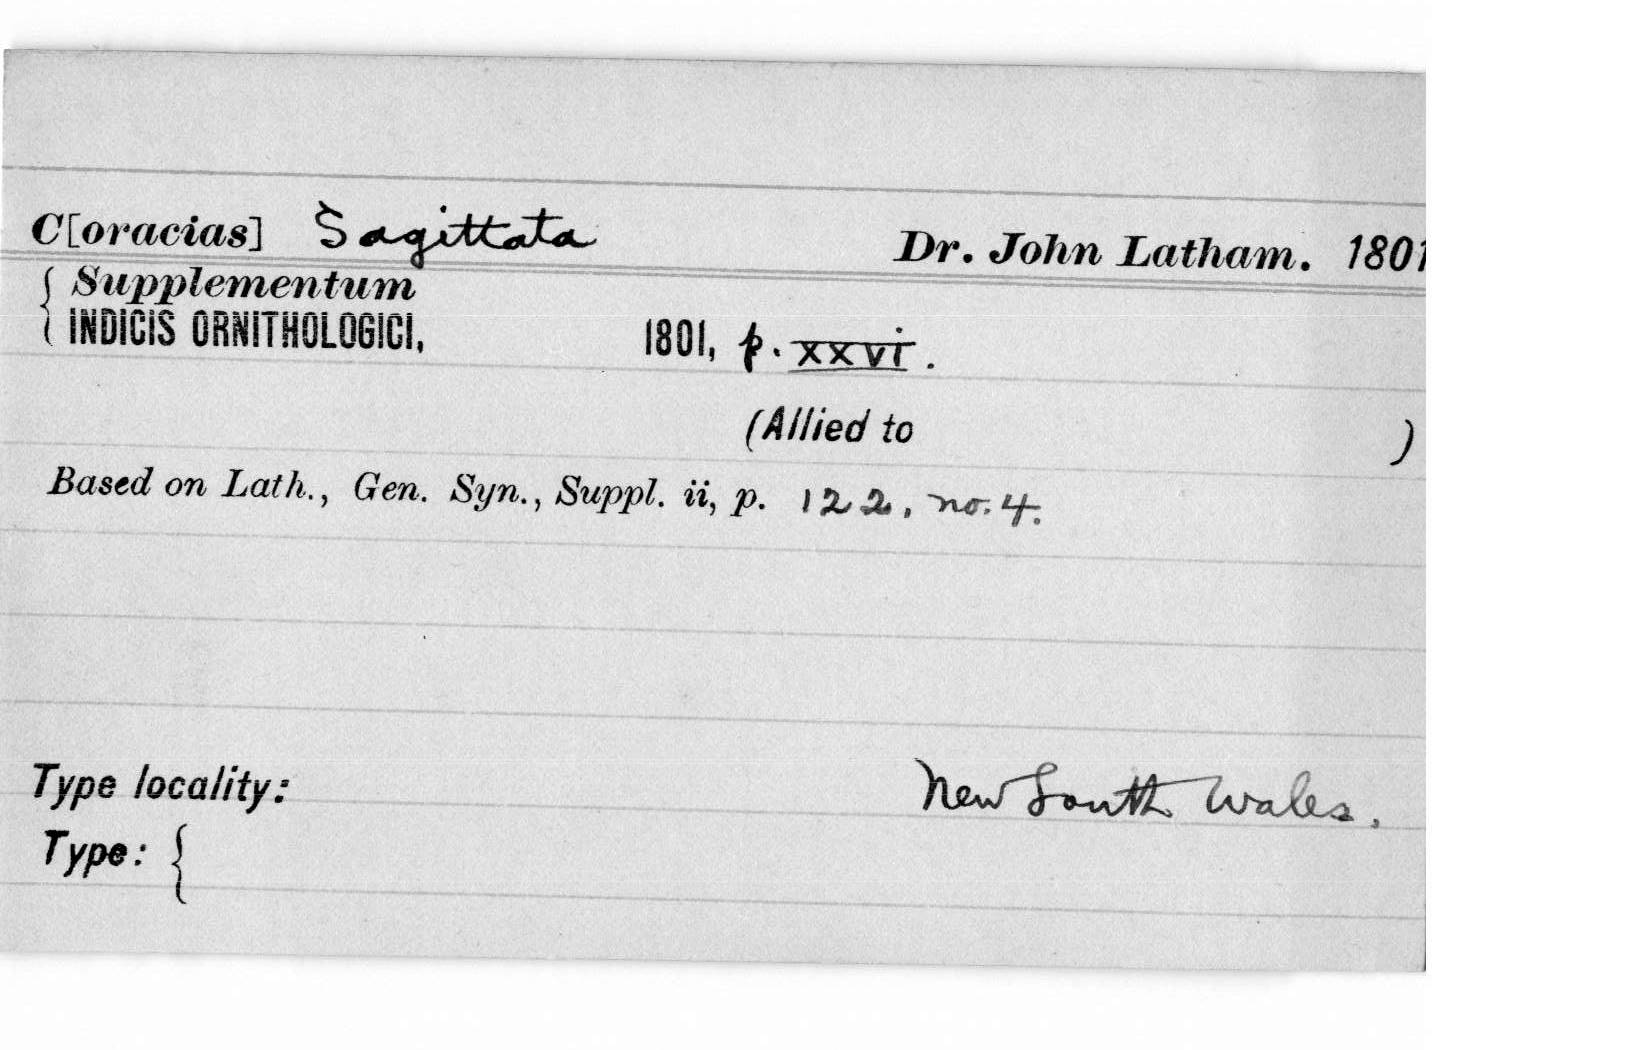 C[oracias] Sagittata Dr. John Latham. 1801
{ Supplementum
INDICIS ORNITHOLOGICI, 1801, p. xxvi.
(Allied to )
Based on Lath., Gen. Syn., Suppl. ii, p. 122, no. 4.
Type locality: New South Wales.
Type: {